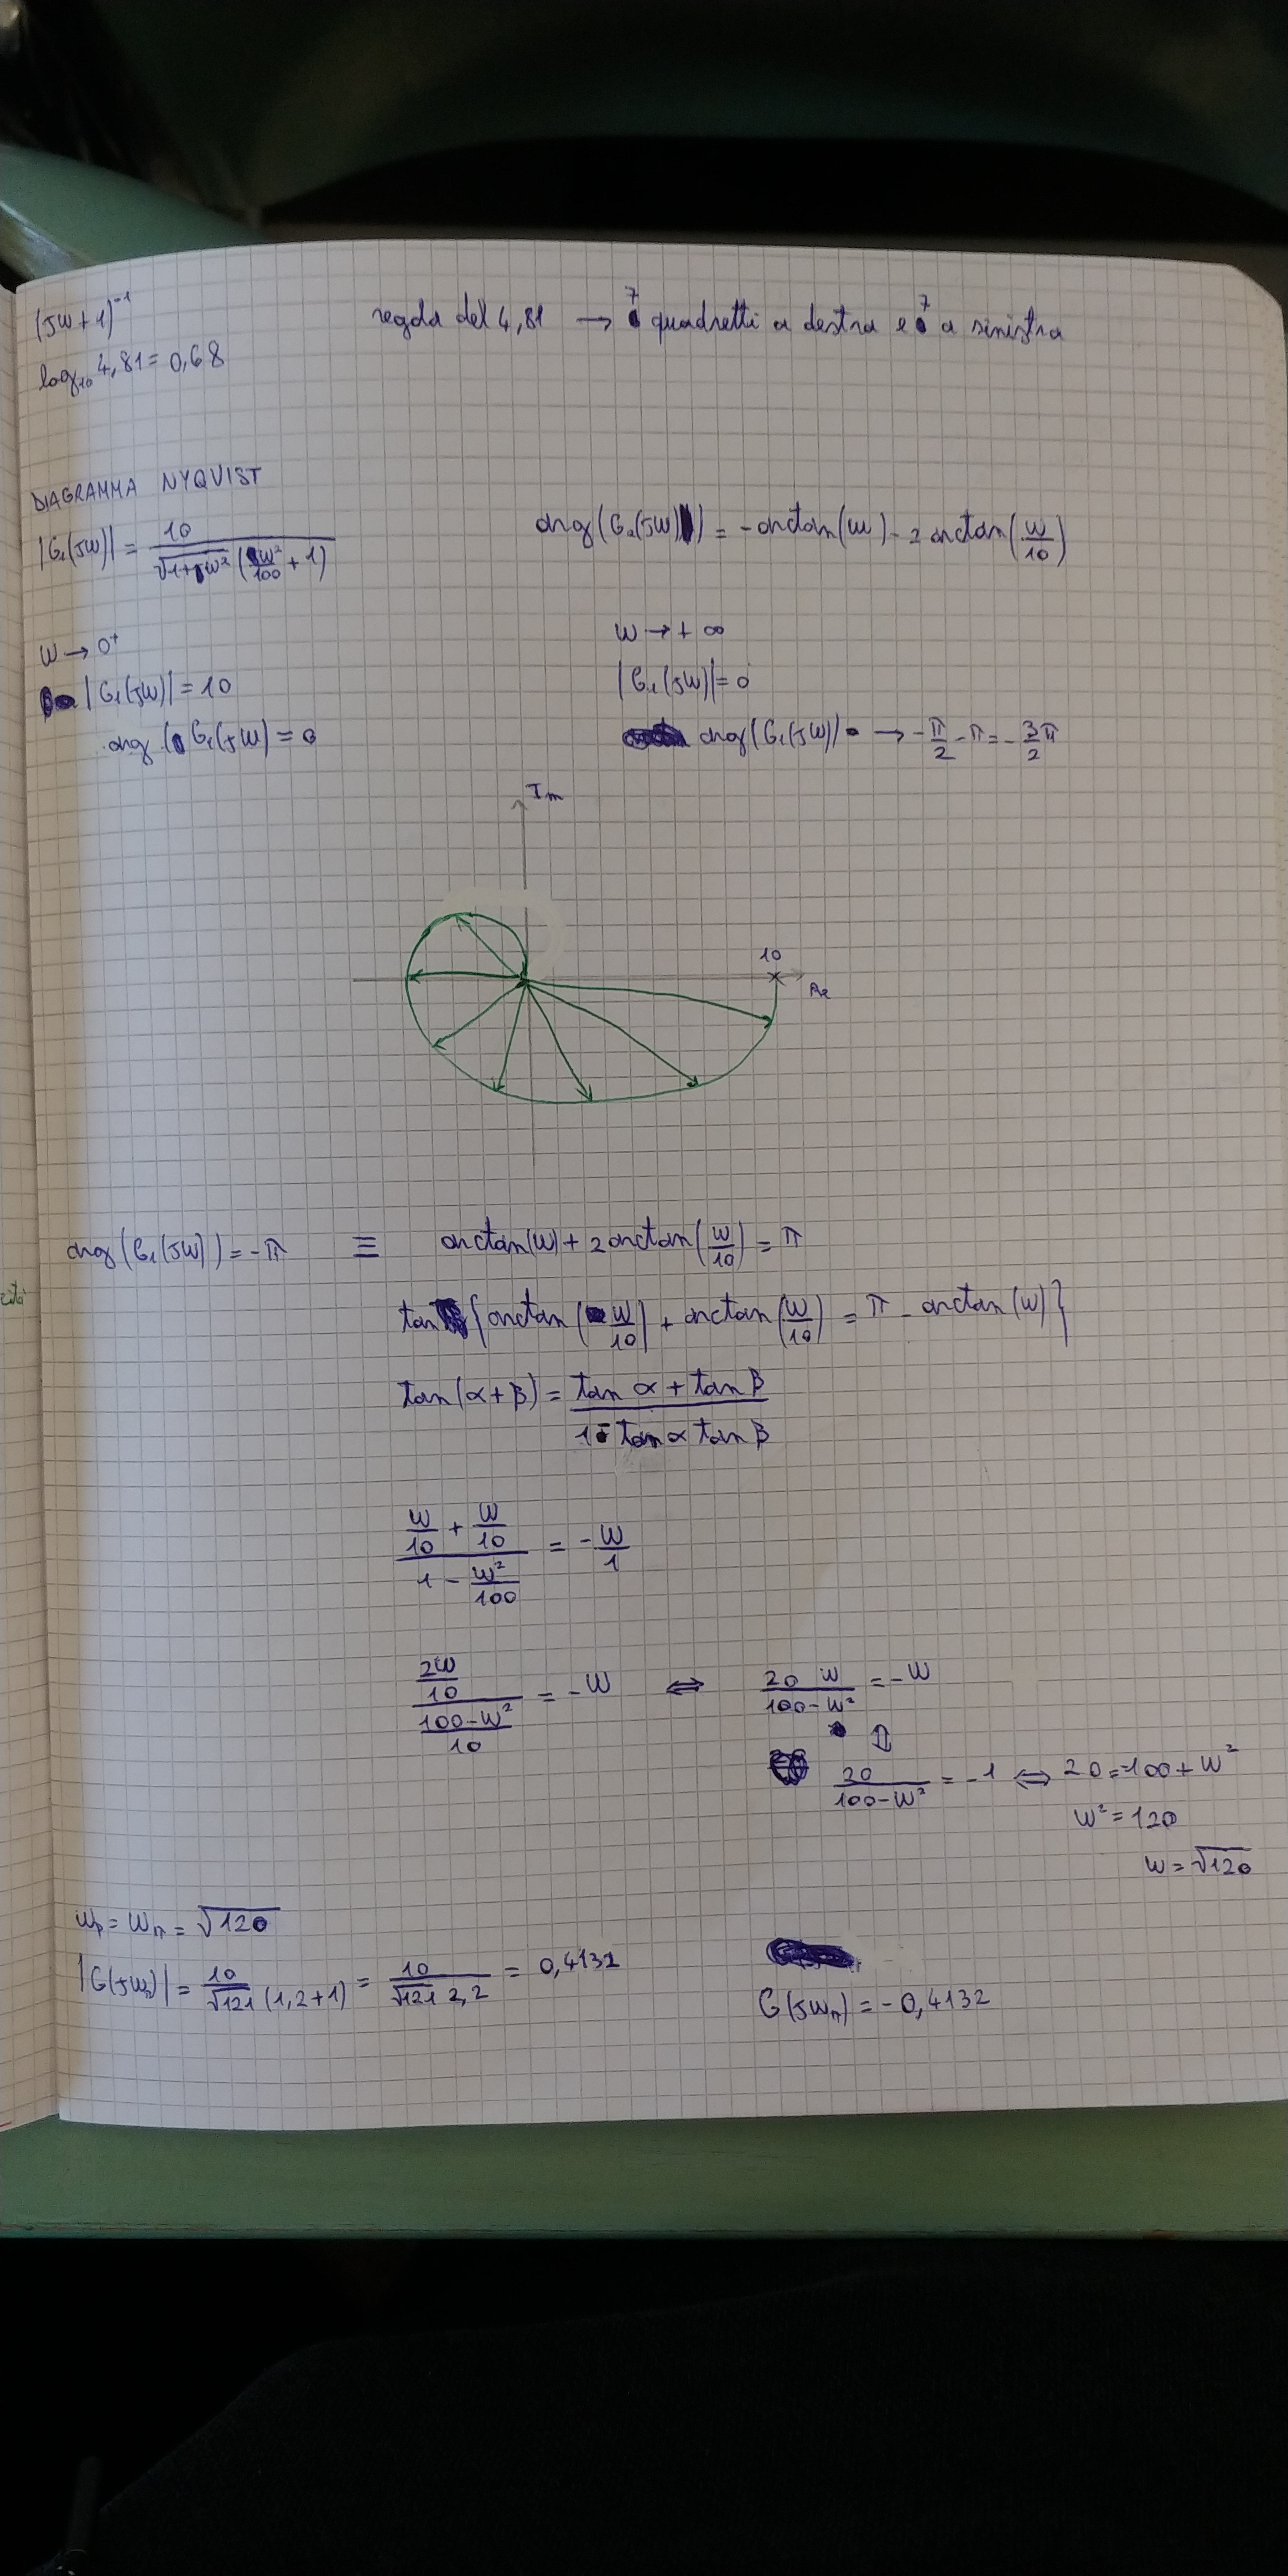 (jω+1)⁻¹
regola del 4,81 → 7 quadretti a destra e 7 a sinistra
log₁₀ 4,81 = 0,68
DIAGRAMMA NYQUIST
|G₁(jω)| = 10 / (√(1+ω²) (ω²/100 + 1))
arg(G₁(jω)) = -arctan(ω) - 2 arctan(ω/10)
ω → 0⁺
|G₁(jω)| = 10
arg(G₁(jω) = 0
ω → +∞
|G₁(jω)| = 0
arg(G₁(jω)) → -π/2 - π = -3π/2
Im
10
Re
arg(G₁(jω)) = -π ≡ arctan(ω) + 2 arctan(ω/10) = π
tan { arctan(ω/10) + arctan(ω/10) = π - arctan(ω) }
tan(α+β) = (tan α + tan β) / (1 - tan α tan β)
(ω/10 + ω/10) / (1 - ω²/100) = -ω/1
(2ω/10) / ((100-ω²)/10) = -ω ⇔ 20 ω / (100-ω²) = -ω
⇕
20 / (100-ω²) = -1 ⇔ 20 = -100 + ω²
ω² = 120
ω = √120
ωp = ωπ = √120
|G(jωπ)| = 10 / (√121 (1,2+1)) = 10 / (√121 2,2) = 0,4132
G(jωπ) = -0,4132